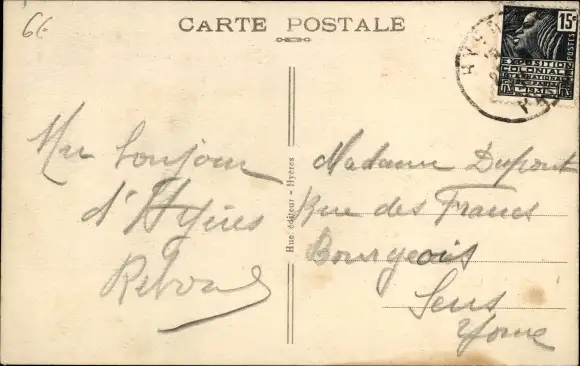 66
CARTE POSTALE
15c
POSTES
EXPOSITION
COLONIALE
INTERNATIONALE
PARIS 1931
Un bonjour
d'Hyères
Hue éditeur - Hyères
Madame Dupont
Rue des Francs
Bourgeois
Sens
Yonne